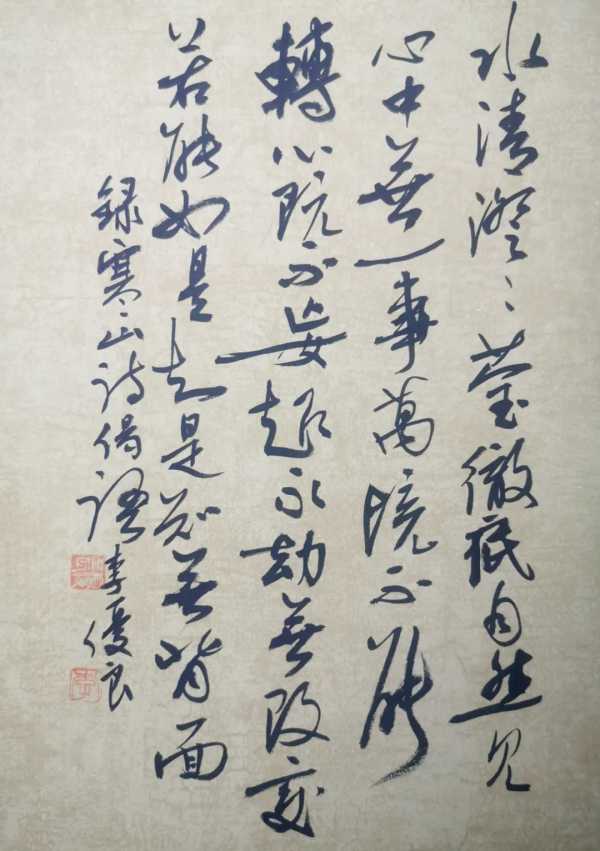 水清澄〻瑩徹底自然見
心中無一事萬境不能
轉心既不妄起永劫無改變
若能如是知是知無背面
録寒山詩偈語李優良